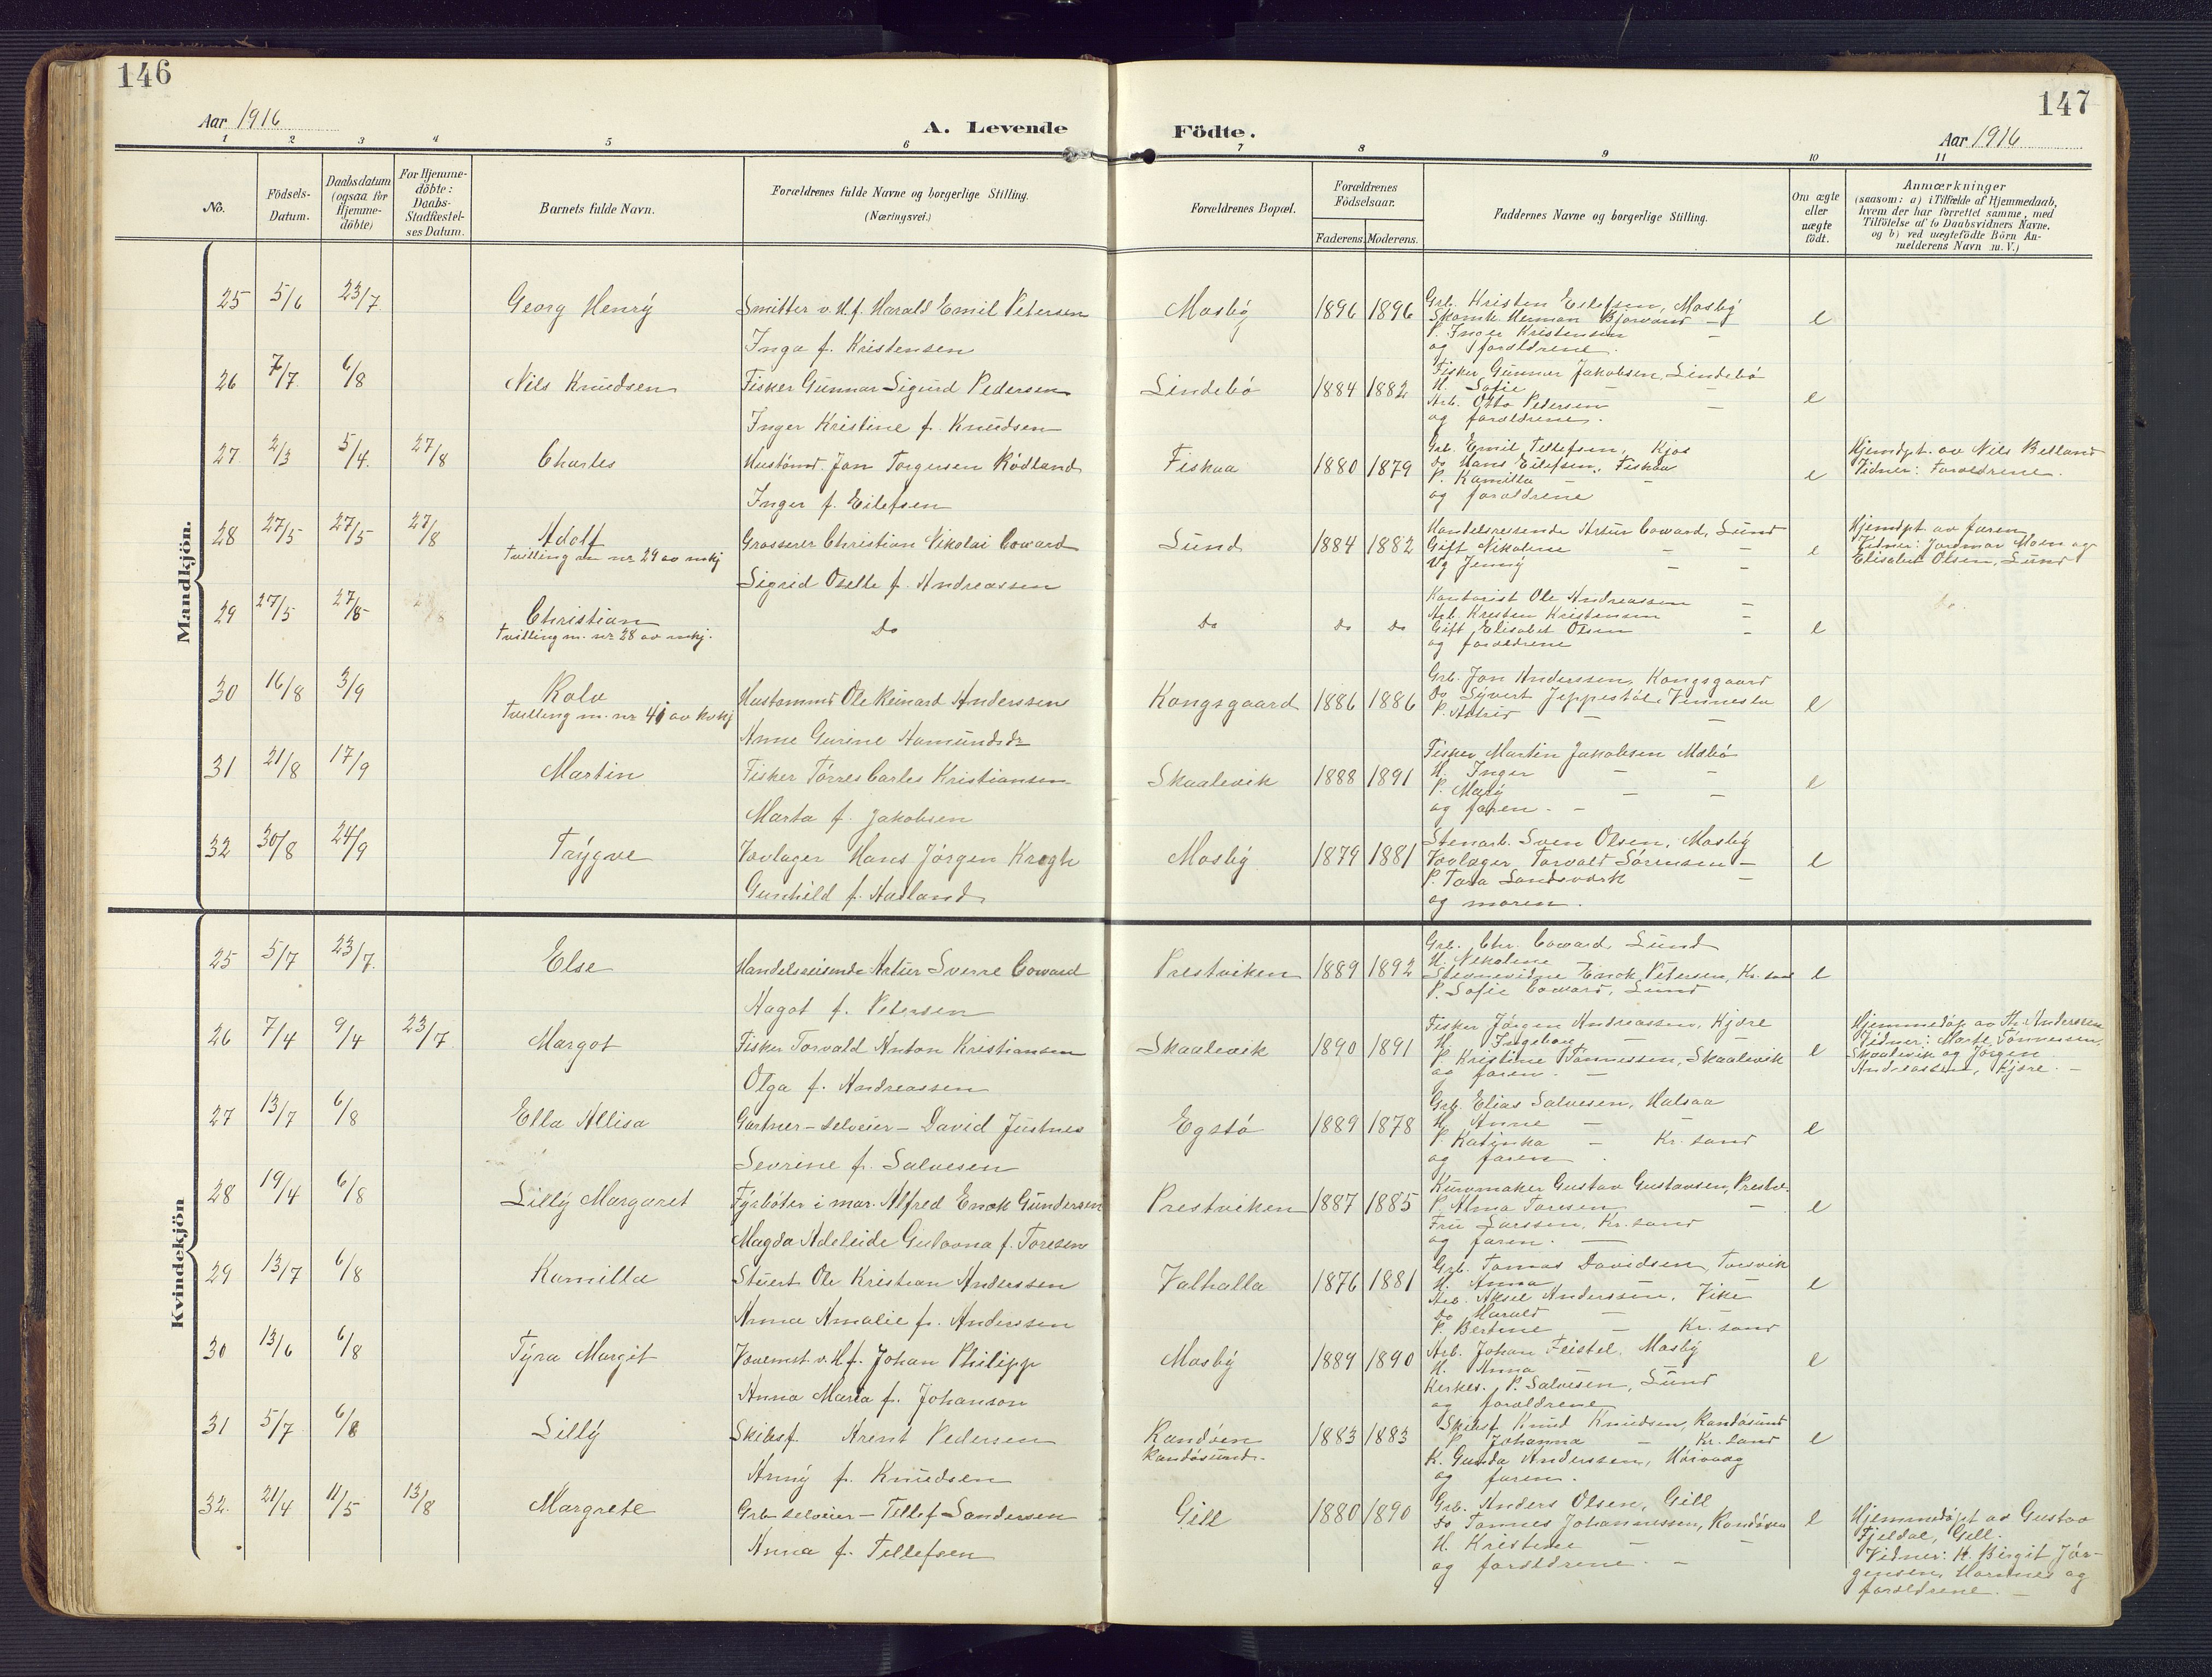 146
147
Aar 1916
A. Levende
Födte.
Aar 1916
1 2 3 4 5 6 7 8 9 10 11
No.
Födsels-
Datum.
Daabsdatum
(ogsaa for
Hjemme-
döbte)
For Hjemme-
döbte:
Daabs-
Stadfæstel-
ses Datum.
Barnets fulde Navn.
Forældrenes fulde Navne og borgerlige Stilling.
(Næringsvei.)
Forældrenes Bopæl.
Forældrenes
Födselsaar.
Faderens. Moderens.
Faddernes Navne og borgerlige Stilling.
Om ægte
eller
uægte
födt.
Anmærkninger
(saasom: a) i Tilfælde af Hjemmedaab,
hvem der har forrettet samme, med
Tilföielse af to Daabsvidners Navne,
og b) ved uægtefödte Börn An-
melderens Navn m. V.)
Mandkjön.
25 5/6 23/7 Georg Henrÿ
Smitter v. H.f. Harald Emil Petersen
Inga f. Kristensen
Mosbÿ 1896 1896
Grb. Kristen Eilefsen, Mosbÿ
Herman Bjorvand -
P. Inger Kristensen -
og foreldrene.
e
26 7/7 6/8 Nils Knudsen
Fisker Gunnar Sigurd Pedersen
Inger Kristine f. Knudsen
Lindebö 1884 1882
Fisker Gunnar Jakobsen, Lindebö
H. Sofie -
Arb. Otto Pedersen -
og foreldrene.
e
27 2/3 5/4 27/8 Charles
Hustömd. Jon Torgersen Rödland
Inger f. Eilefsen
Fiskaa 1880 1879
Grb. Emil Tellefsen, Kjos
do Hans Eilefsen, Fiskaa
P. Kamilla - -
og foreldrene
e
Hjemdpt. av Nils Belland
Vidner: Foreldrene.
28 27/5 27/5 27/8 Adolf
Tvilling m nr 29 av mkj
Grosserer Christian Nikolai Coward
Sigrid Oselle f. Andreassen
Lund 1884 1882
Handelsreisende Artur Coward, Lund
Gift Nikoline - -
Ug Jenny - -
e
Hjemdpt av faren
Vidner: Jordmor Moen og
Elisabet Olsen, Lund
29 27/5 27/5 Christian
Tvilling m. nr 28 av mkj.
Do
Do
Do Do
Kontorist Ole Andreassen -
Arb. Kresten Kristensen -
Gift Elisabet Olsen -
og foreldrene
e
do.
30 16/8 3/9 Rolv
Tvilling m. nr 41 av kvkj
Hustømmd Ole Reinard Anderssen
Anne Gurine Aamundsdr
Kongsgaard 1886 1886
Grb. Jon Anderssen, Kongsgaard
Do Sÿvert Jeppestöl, Vennesla
P. Astrid - -
e
31 21/8 17/9 Martin
Fisker Törres Carles Kristiansen
Marta f. Jakobsen
Skaalevik 1888 1891
Fisker Martin Jakobsen
H. Inger - -
P. Marÿ - -
og faren. -
e
32 30/8 24/9 Trÿgve
Vovlager Hans Jörgen Krogh
Gunhild f. Aasland
Mosbÿ 1879 1881
Stenarb. Sven Olsen, Mosbÿ
Vovlager Torvald Sörensen -
P. Tora Landsverk -
og moren.
e
Kvindekjön
25 5/7 23/7 Else
Handelsreisende Artur Sverre Coward
Hagot f. Petersen
Prestviken 1889 1892
Grb. Chr. Coward, Lund
H. Nikoline
Stevnevidne Enok Petersen, Kr. sand
P. Sofie Coward, Lund
e
26 7/4 9/4 23/7 Margot
Fisker Torvald Anton Kristiansen
Olga f. Andreassen
Skaalevik 1890 1891
Fisker Jörgen Andreassen, Kjöre
H. Ingeborg -
P. Kristine Tönnessen, Skaalevik
og faren. -
e
Hjemmedöp av Th. Anderssen
Vidner: Marte Tönnessen,
Skaalevik og Jörgen
Andreassen, Kjöre. -
27 13/7 6/8 Ella Allisa
Gartner - selveier - David Justnes
Sevrine f. Salvesen
Egstö 1889 1878
Grb. Elias Salvesen, Halsaa
H. Anne -
P. Katinka - Kr. sand
og faren.
e
28 19/4 6/8 Lillÿ Margaret
Fÿrböter i mar. Alfred Enok Gundersen
Magda Adeleide Gulovna f. Toresen
Prestviken 1887 1885
Kurvmaker Gustav Gustavsen, Prestv.
P. Alma Toresen -
Fru Larssen, Kr. sand
og faren. -
e
29 13/7 6/8 Kamilla
Stuert Ole Kristian Anderssen
Anna Amalie f. Anderssen
Valhalla 1876 1881
Grb. Tomas Davidsen, Torsvik
H. Anna -
Arb. Aksel Anderssen, Vike
Do Harald -
P. Bertine - Kr. sand
e
30 13/6 6/8 Tÿra Margit
Vævemst. v. H.f. Johan Philipp
Anna Maria f. Johanson
Mosbÿ 1889 1890
Arb. Johan Feistel, Mosbÿ
H. Anna -
Kirkes. P. Salvesen, Lund
og foreldrene
e
31 5/7 6/8 Lillÿ
Skibsf. Arent Pedersen
Annÿ f. Knudsen
Randöen
Randösund.
1883 1883
Skibsf. Knud Knudsen, Randösund
P. Johanna - Kr. sand
K. Gunda Anderssen, Höivaag
og faren.
e
32. 21/4 11/5 13/8 Margrete
Grb selveier - Tellef Sandersen
Anna f. Tellefsen
Gill 1880 1890
Grb. Anders Olsen, Gill
Do Tomnes Johannessen, Randöen
H. Kristine - -
og foreldrene. -
e
Hjemmedöpt av Gustav
Fjeldal, Gill.
Vidner: K. Birgit Jör-
gensen, Hamnes og
foreldrene. -